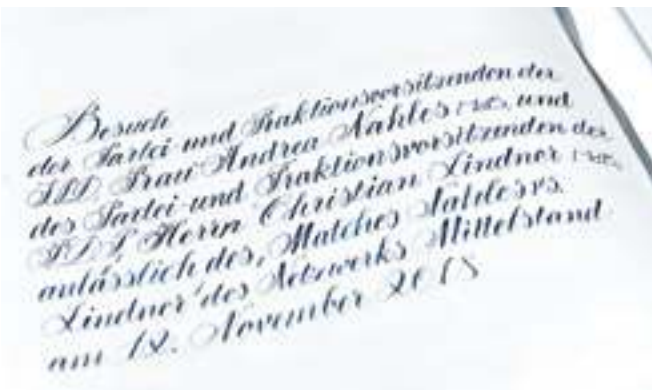 Besuch
der Partei und Fraktionsvorsitzenden der
SPD, Frau Andrea Nahles MdB, und
des Partei-und Fraktionsvorsitzenden der
FDP, Herrn Christian Lindner MdB,
anlässlich des „Matches Nahles vs.
Lindner" des Netzwerks Mittelstand
am 12. November 2018